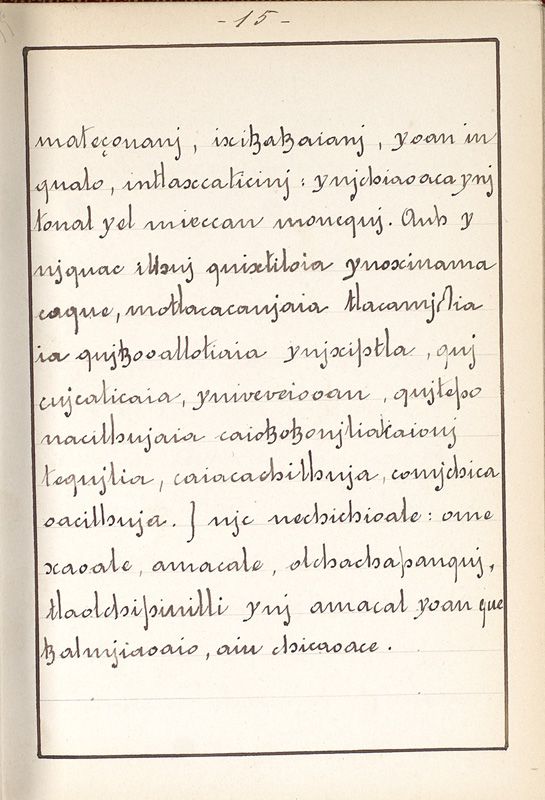 - 15 -
mateçonanj, ixitzatzaianj, yoan in
qualo, intlaxcaticinj: ynjchiaoaca ynj
tonal yel mieccan monequj. Auh y
njquac ilhuj quixtiloia ynoxinama
caque, motlacacanjaia tlacamjctia
ia qujtzooallotiaia ynjxiptla, quj
cujcaticaia, yniveveiooan, qujtepo
nacilhujaia caiotzotzonjliaticaionj
tequjtia, caiacachilhuja, comjchica
oacilhuja. } njc nechichioale: ome
xaoale, amacale, olchachapanquj,
tlaolchipinilli ynj amacal yoan que
tzalmjiaoaio, aiu chicaoace.